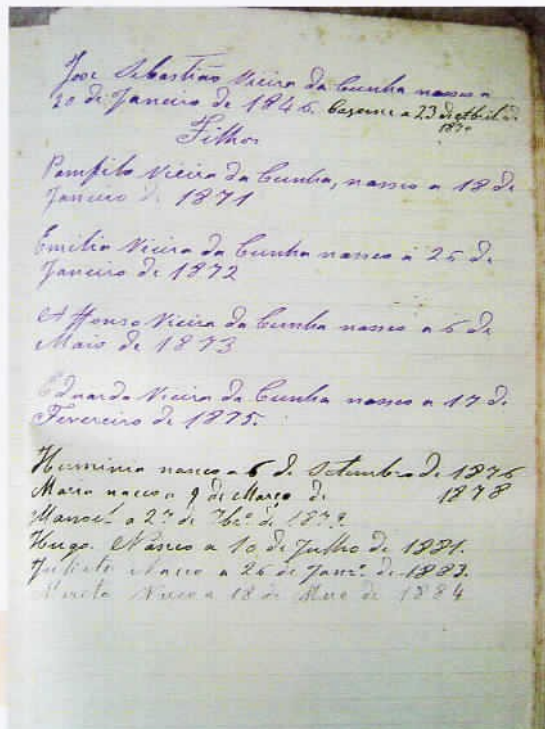 José Sebastião Vieira da Cunha nasceu a
20 de Janeiro de 1846. Casou-se a 23 de Abril de
1870
Filhos
Pamfilo Vieira da Cunha, nasceu a 18 de
Janeiro de 1871
Emilia Vieira da Cunha nasceu a 25 de
Janeiro de 1872
Affonso Vieira da Cunha nasceu a 6 de
Maio de 1873
Eduardo Vieira da Cunha nasceu a 17 de
Fevereiro de 1875.
Herminia nasceu a 6 de Setembro de 1876
Maria nasceu a 9 de Março de 1878
Manoel a 27 de 7brº de 1879.
Hugo. Nasceu a 10 de Julho de 1881.
Julieta Nasceu a 26 de Janrº de 1883.
Nasceu a 18 de de 1884